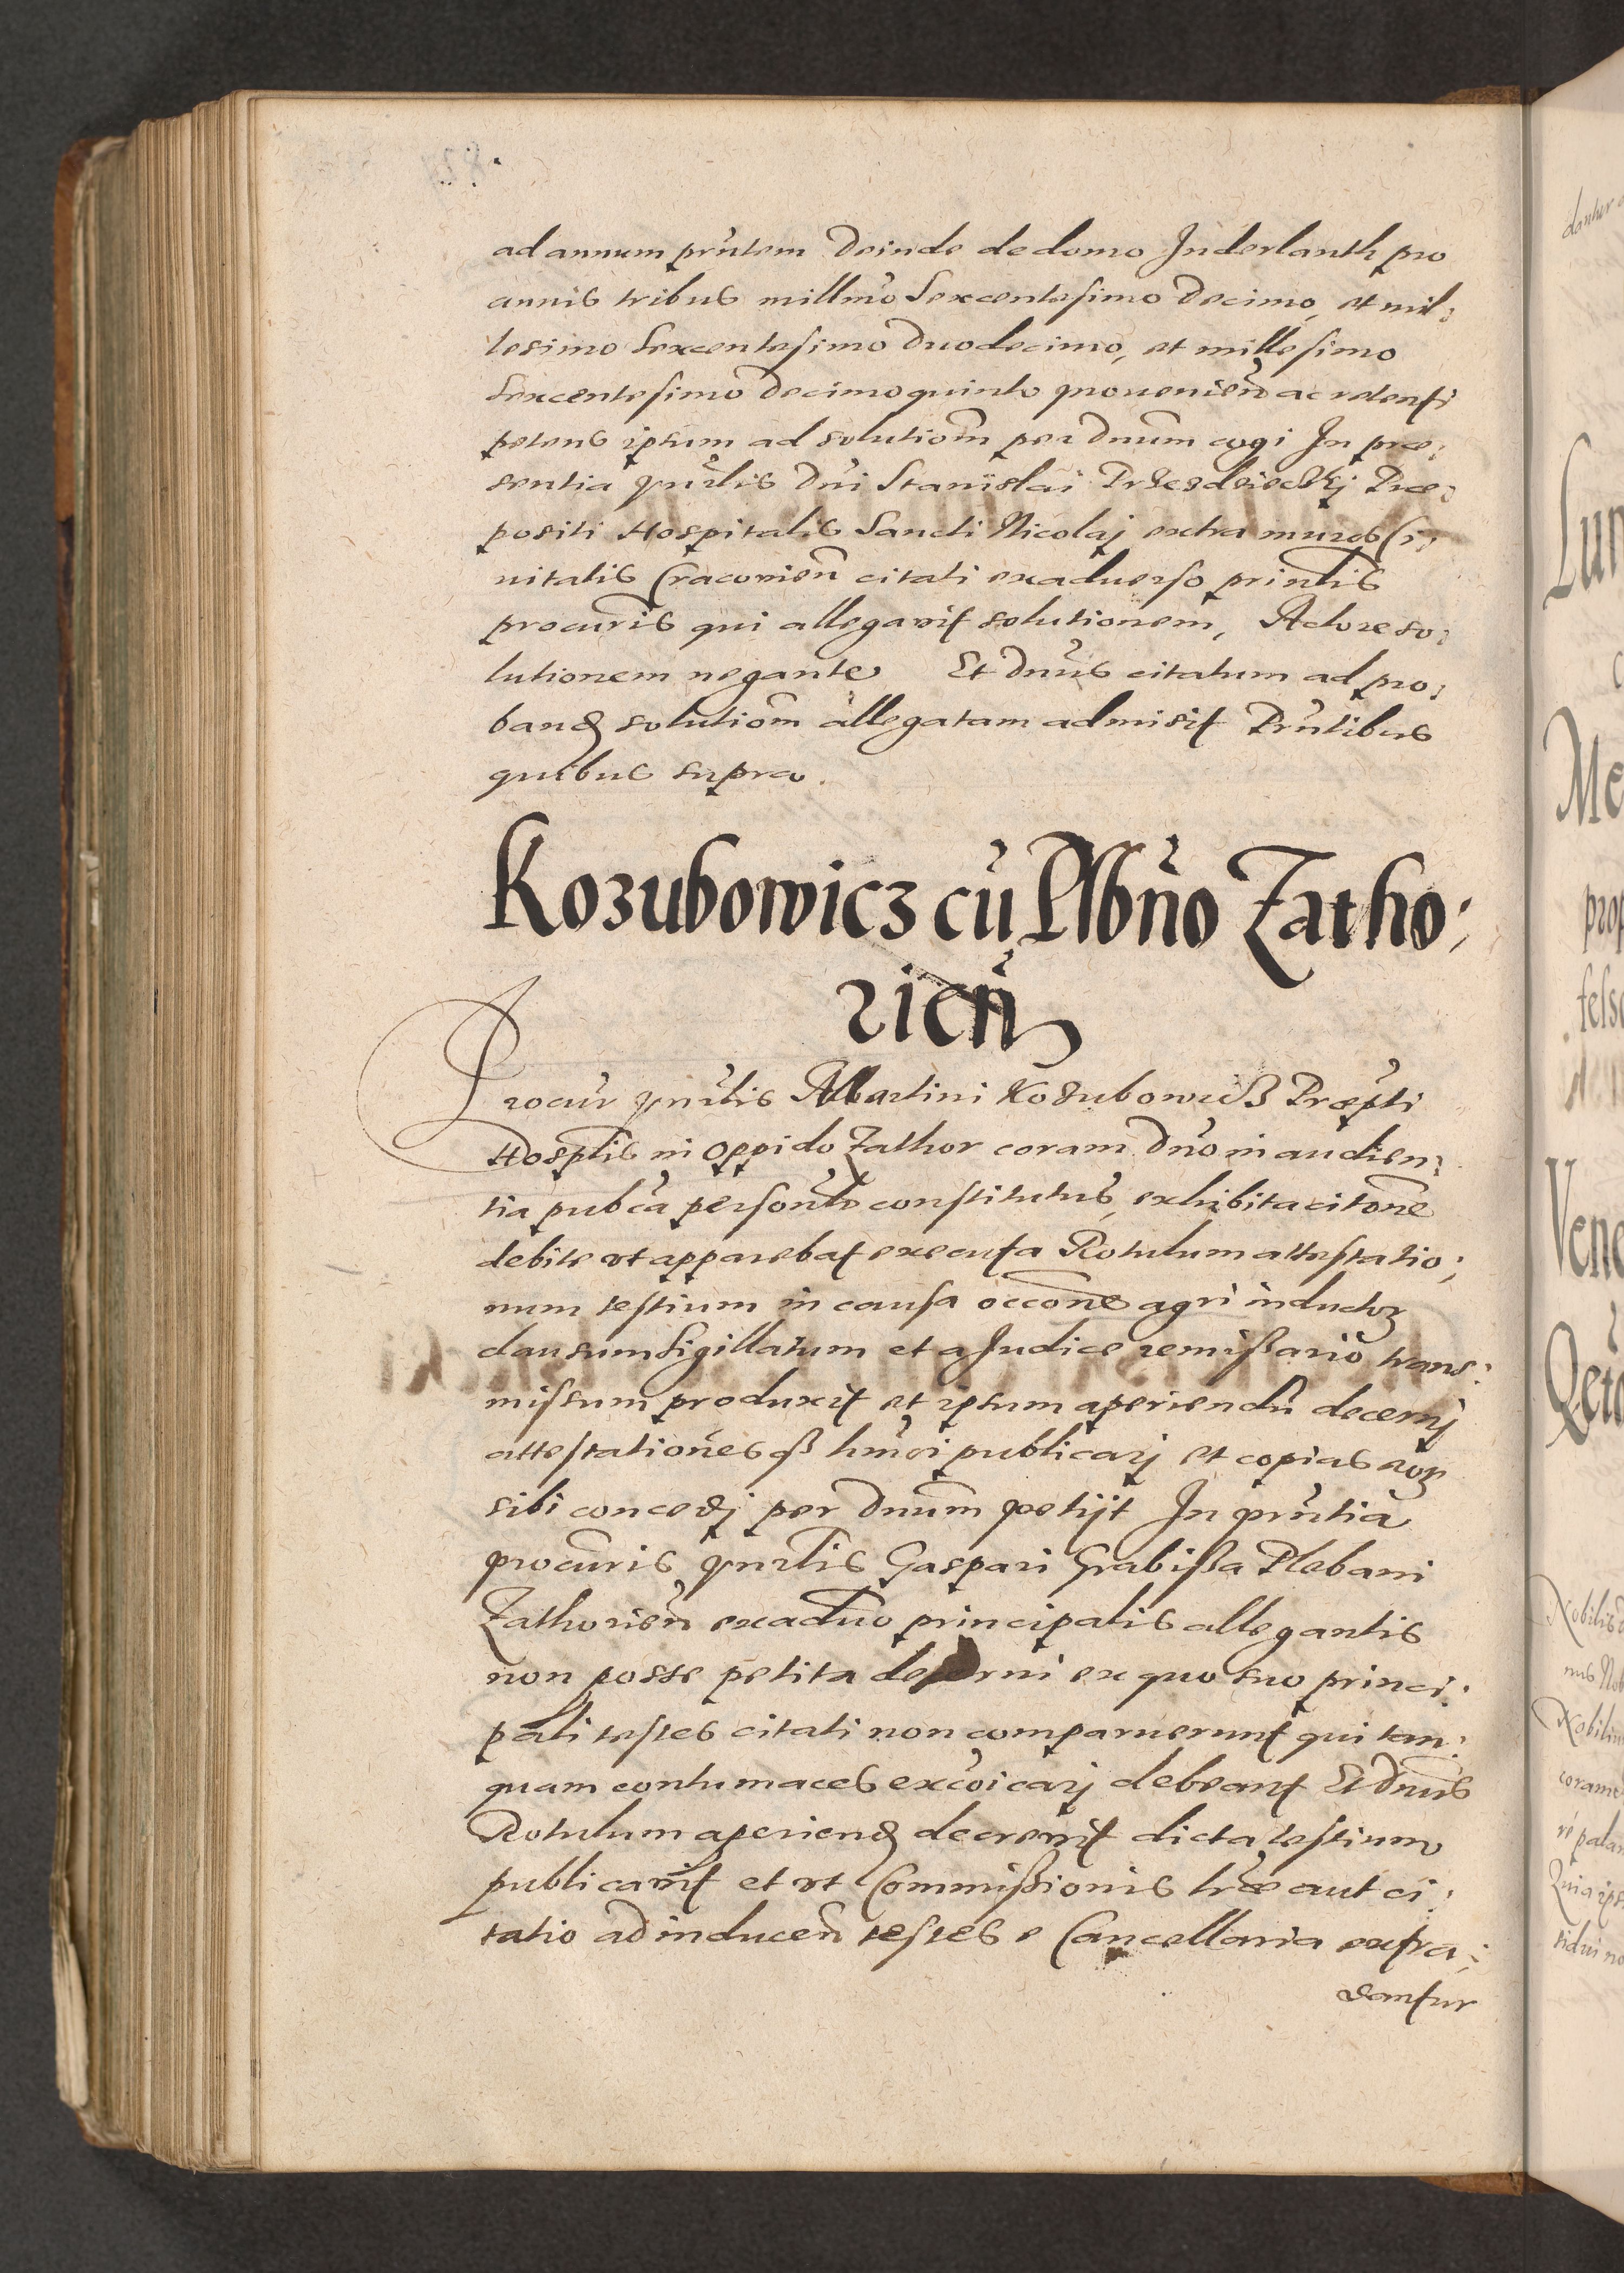 ad annum prntem Deinde de domo Inderlanth pro
annis tribus millmo Sexcentesimo Decimo, et mil:
lesimo Sexcentesimo Duodecimo, et millesimo
Sexcentesimo Decimoquinto prouenien ac retensi
petens ipsum ad solutiom per Dnum cogi In præ:
sentia Dni Stanislai Præ:
positi Hospitalis Sancti Nicolaj extra muros Ci:
uitatis Cracouien citati exaduerso prin
procuris qui allegauit solutionem, Actore so:
lutionem negante Et Dnus citatum ad pro:
band solutiom allegatam admisit Prntibus
quibus supra.
Kozubowicz cu Plbno Zatho:
rien
Procur Martini Kozubowicz Præpti
Hosptlis in oppido Zathor coram Dno in audien:
tia pubca personlr constitutus, exhibita citone
debite vt apparebat executa Rotulum attestatio:
num testium in causa occone agri inductor
clausum Sigillatum et a Judice remißario trans:
missum produxit et ipsum aperiendu decernj
attestationesqß hmoi publicarj et copias eor
sibi concedj per Dnum petijt In prntia
procuris Gaspari Grabißa Plebani
Zathorien exaduo principalis allegantis
non posse petita decerni ex quo suo princi:
pali testes citati non comparuerunt qui tan:
quam contumaces excoicarj debeant Et Dnus
Rotulum aperiend decreuit dicta testium
publicauit et vt Commißionis lræ aut ci:
tatio ad inducen testes e Cancellaria extra:
dantur